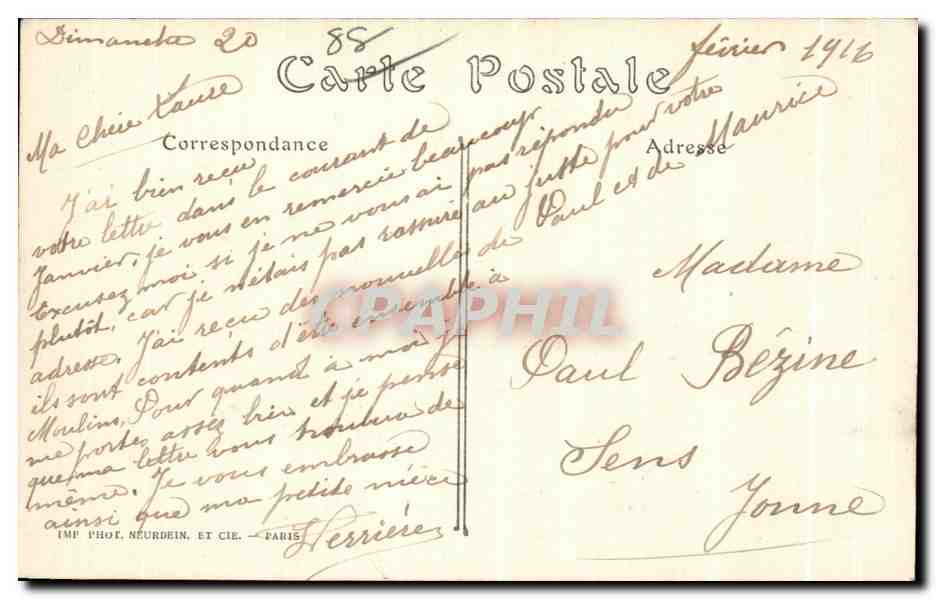 Dimanche 20 février 1916
88
Carte Postale
Correspondance
Adresse
Ma Chère Laure
J'ai bien reçu
votre lettre dans le courant de
Janvier, je vous en remercie beaucoup
Excusez moi si je ne vous ai pas répondu
plutôt, car je n'étais pas rassuré au juste pour votre
adresse. J'ai reçu des nouvelles de Paul et de Maurice
ils sont contents d'être ensemble à
Moulins, Pour quand à moi je
me portes assez bien et je pense
que ma lettre vous trouve de
même. Je vous embrasse
ainsi que ma petite nièce
Verrière
Madame
Paul Bézine
Sens
Yonne
CPAPHIL
IMP. PHOT. NEURDEIN. ET CIE. — PARIS